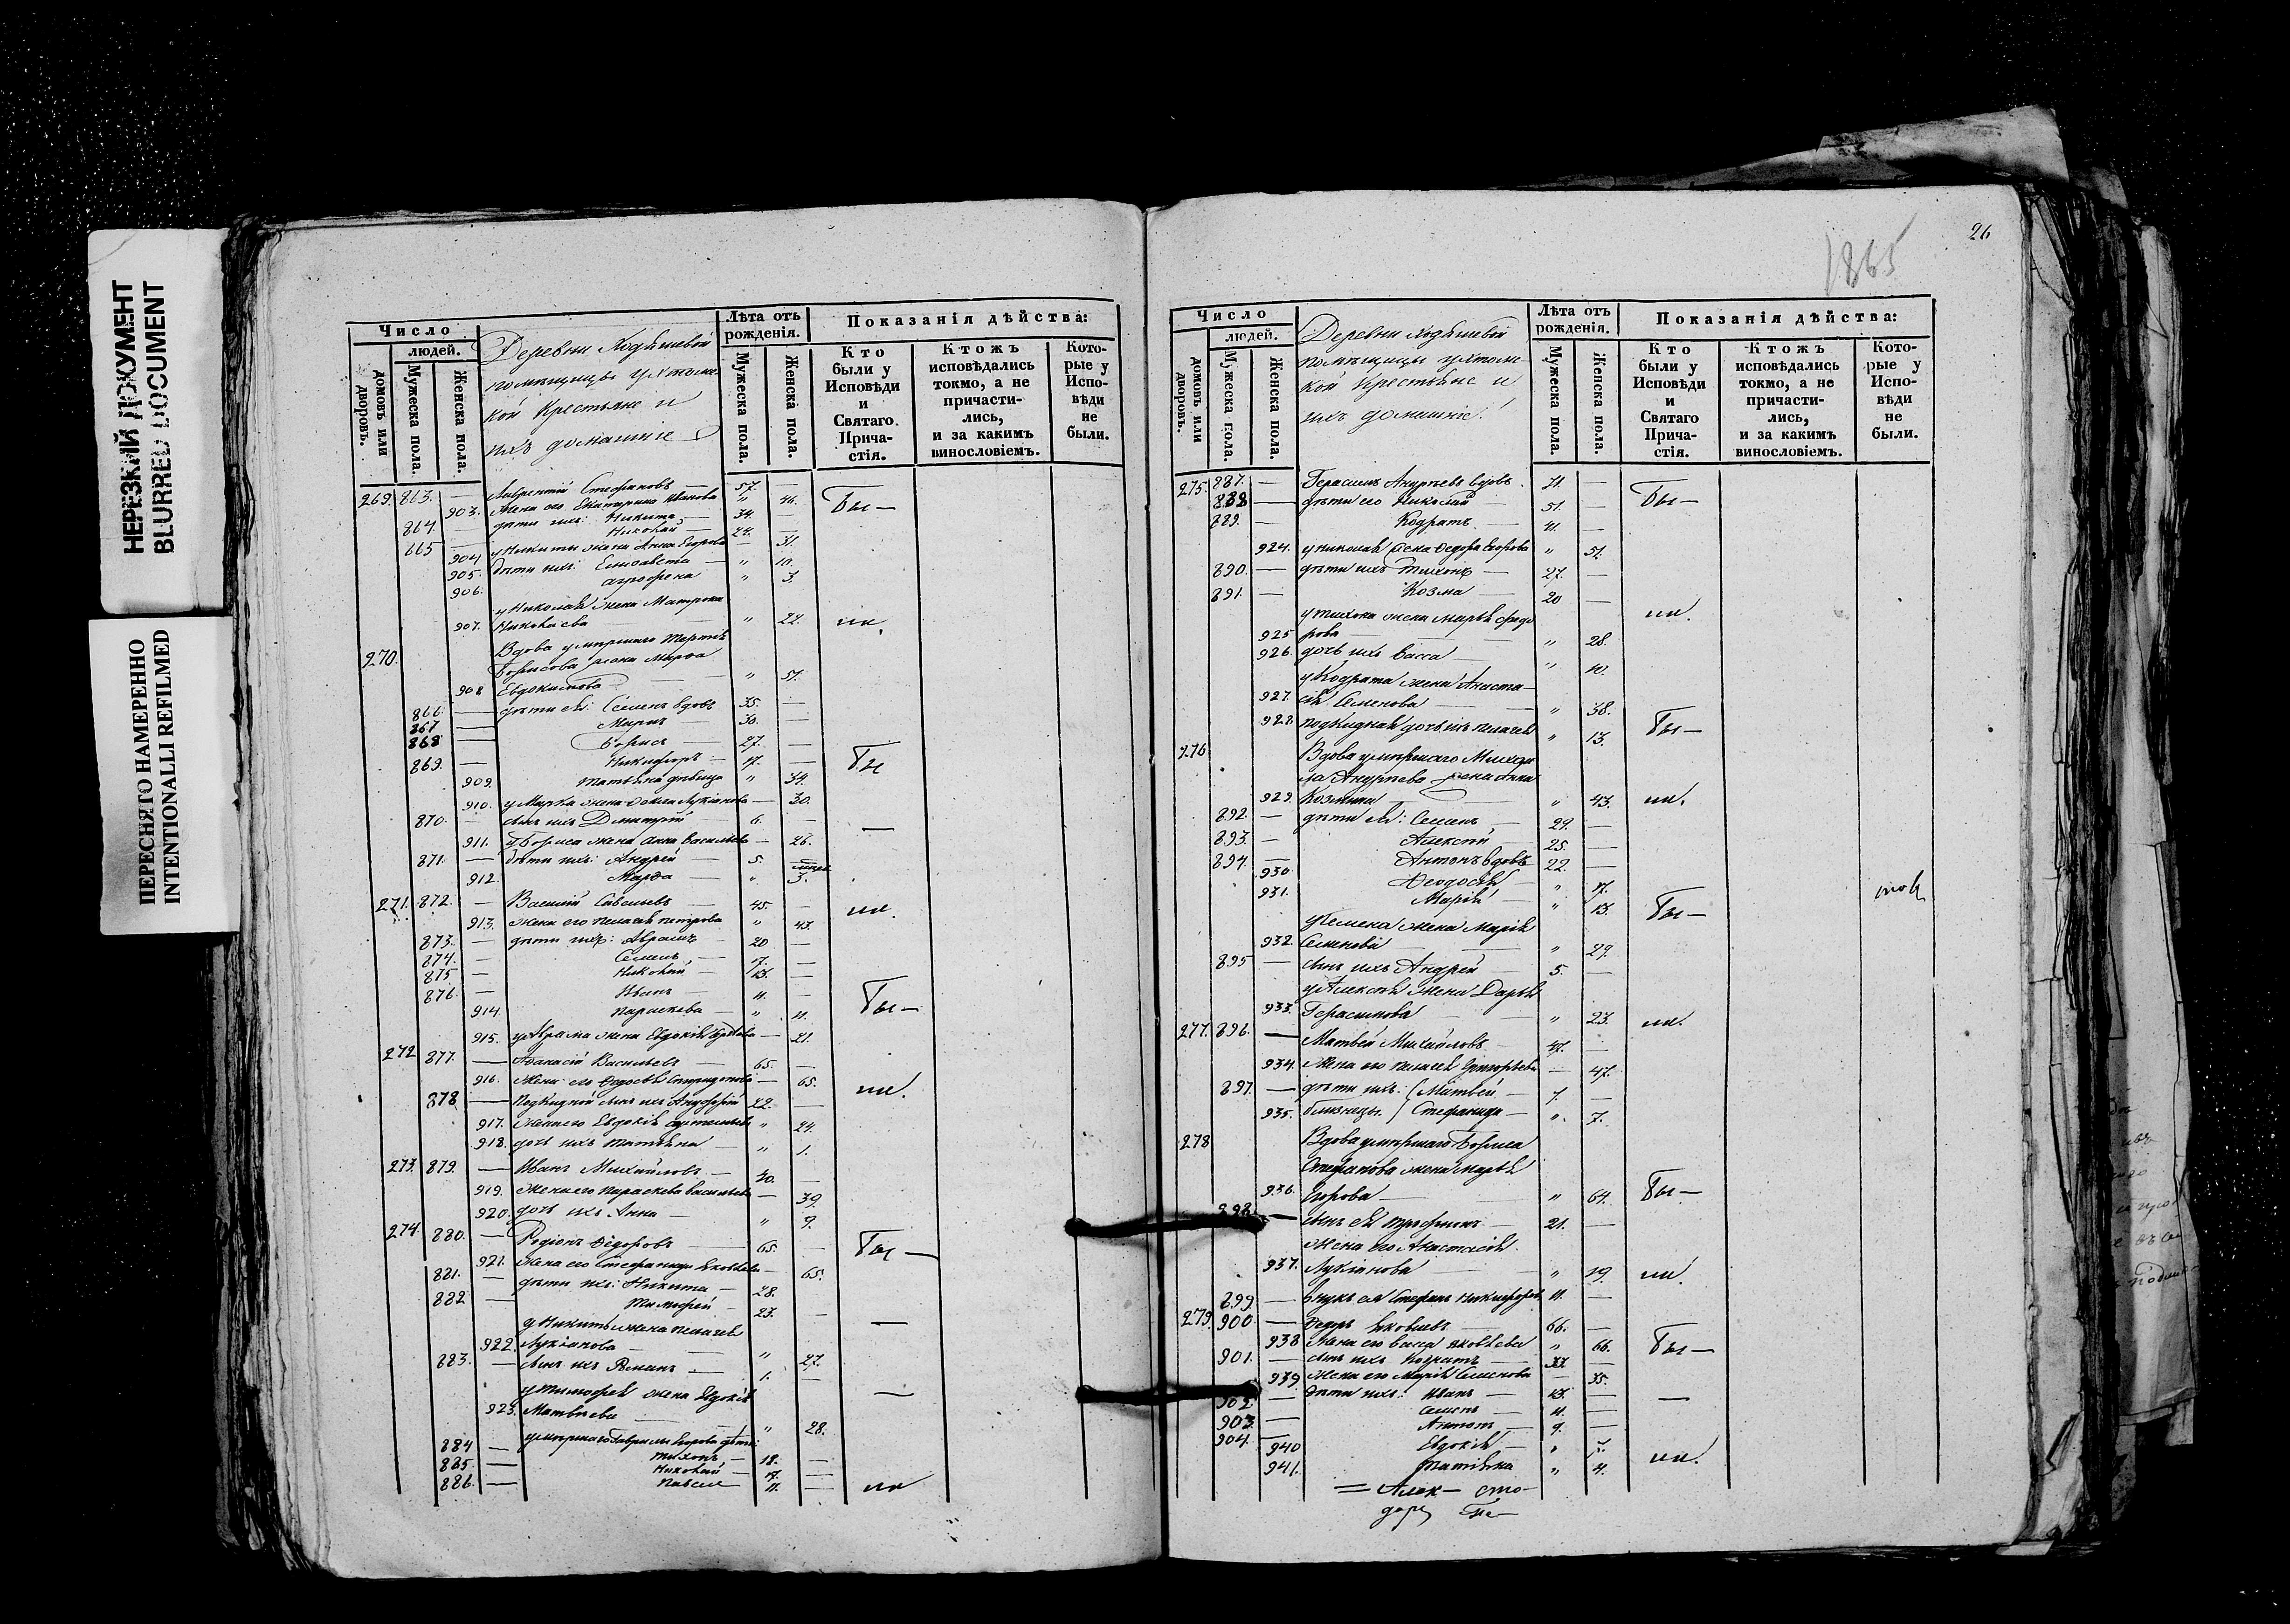 НЕРЕЗКИЙ ДОКУМЕНТ
BLURRED DOCUMENT
ПЕРЕСНЯТО НАМЕРЕННО
INTENTIONALLI REFILMED
Число
людей.
домовъ или дворовъ.
Мужеска пола.
Женска пола.
Деревни
помѣщицы
кой Крестьяне и
ихъ домашніе
Лѣта отъ рожденія.
Мужеска пола.
Женска пола.
Показанія дѣйства:
Кто были у Исповѣди и Святаго Прича-стія.
Ктожъ исповѣдались токмо, а не причасти-лись, и за какимъ винословіемъ.
Кото-рые у Испо-вѣди не были.
269. 863. — Лаврентій Стефановъ — 57. —
903. Жена его Екатерина Иванова " 46. Бы —
864 дѣти ихъ: Никита — 34.
865 — Николай — 24. —
904 у Никиты жена Анна Егорова — 31.
905. дѣти ихъ: Елисавета — " 10.
906. Агрофена " 3.
у Николая жена Матрона
907. Николаева — " 22. ли.
270. Вдова умершаго
Борисова жена Марфа
908 Евдокимова — " 57.
866. — дѣти ея: Семенъ вдовъ 35. —
867 — 30. —
868 — Борисъ — 27. —
869. — Никифоръ — 17. — Бы
909. Татьяна дѣвица " 34.
910. у Марка жена Лукіанова — 30.
870. — сынъ ихъ Димитрій — 6. —
911. у Бориса жена Анна Васильева — 26.
871. — дѣти ихъ: Андрей — 5.
912. Марфа — " 3.
271. 872. — Василій Савельевъ — 45. —
913. жена его Пелагея Петрова " 43. ли.
873. — дѣти ихъ: Аврамъ — 20 —
874. — Семенъ — 17. —
875 — Николай — 13. —
876. — Иванъ — 11. —
914 Параскева — " 11. Бы —
915. у Аврама жена Евдокія — 21.
272 877. — Афанасій Васильевъ — 65. —
916. жена его Федосья Спиридонова — 65. ли.
878 — Подкидной сынъ ихъ 22. —
917. жена его Евдокія " 24.
918. дочь ихъ Татьяна — " 1.
273. 879. — Иванъ Михайловъ — 40. —
919. жена его Параскева Васильева — 39
920. дочь ихъ Анна — " 9.
274. 880. — Родіонъ Федоровъ — 65. — Бы —
921. жена его Стефанида Яковлева — 65.
881. — дѣти ихъ: Никита — 28.
882 — Тимофей — 23. —
у Никиты жена Пелагея
922. Лукіанова — " 27.
883. — сынъ ихъ Романъ 1. —
у Тимофея жена Евдокія
923. Матвѣева — " 28.
умершаго Гавріила Егорова дѣти:
884 — Тихонъ — 18. —
885. — Николай — 17. —
886. — Павелъ 11. — ли
1865
26
Число
людей.
домовъ или дворовъ.
Мужеска пола.
Женска пола.
Деревни
помѣщицы
кой Крестьяне и
ихъ домашніе
Лѣта отъ рожденія.
Мужеска пола.
Женска пола.
Показанія дѣйства:
Кто были у Исповѣди и Святаго Прича-стія.
Ктожъ исповѣдались токмо, а не причасти-лись, и за какимъ винословіемъ.
Кото-рые у Испо-вѣди не были.
275. 887. — Герасимъ Андреевъ вдовъ 71. —
888 — дѣти его Николай 51. — Бы —
889. — Кодратъ — 41. —
924. у Николая жена Федора Егорова " 51.
890. — дѣти ихъ Тихонъ — 27. —
891. — Козма — 20 —
у Тихона жена Марья Федо ли.
925 рова — " 28.
926. дочь ихъ Васса — " 10.
у Кодрата жена Анаста-
927. сія Семенова — " 38.
928. подкидная дочь ихъ Пелагея " 13. Бы —
276 Вдова умершаго Михаи
ла Андреева жена Анна
929. Козмина — " 43. ли.
892. — дѣти ея: Семенъ — 29. —
893. — Алексѣй — 25. —
894. — Антонъ вдовъ 22. —
930 Феодосія — " 17.
931. Марія — " 13. Бы —
у Семена жена Марія
932. Семенова — " 29.
895 — сынъ ихъ Андрей — 5. —
у Алексѣя жена Дарья
933. Герасимова — " 23. ли.
277. 896. — Матвѣй Михайловъ — 47. —
934. жена его Пелагея Григорьева — 47.
897. — дѣти ихъ: Матвѣй — 7. —
935. близнецы. Стефанида — " 7.
278 Вдова умершаго Бориса
Стефанова жена Марья
936. Егорова — " 64. Бы —
898 — сынъ ея Трофимъ — 21. —
жена его Анастасія
937. Лукіанова — " 19. ли.
899 — внукъ ея Стефанъ Никифоровъ 11. —
279. 900 — Федоръ Яковлевъ — 66. —
938 жена его Васса Яковлева " 66. Бы —
901. — сынъ ихъ Кодратъ — 33. —
939 жена его Марія Семенова — 35.
902. — дѣти ихъ: Иванъ — 13. —
903. — Семенъ — 11. —
904. — Антонъ — 9. —
940 Евдокія — "
941. Татьяна " 4. ли.